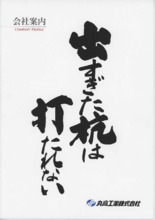 会社案内
出すぎた杭は
打たれない
丸高工業株式会社